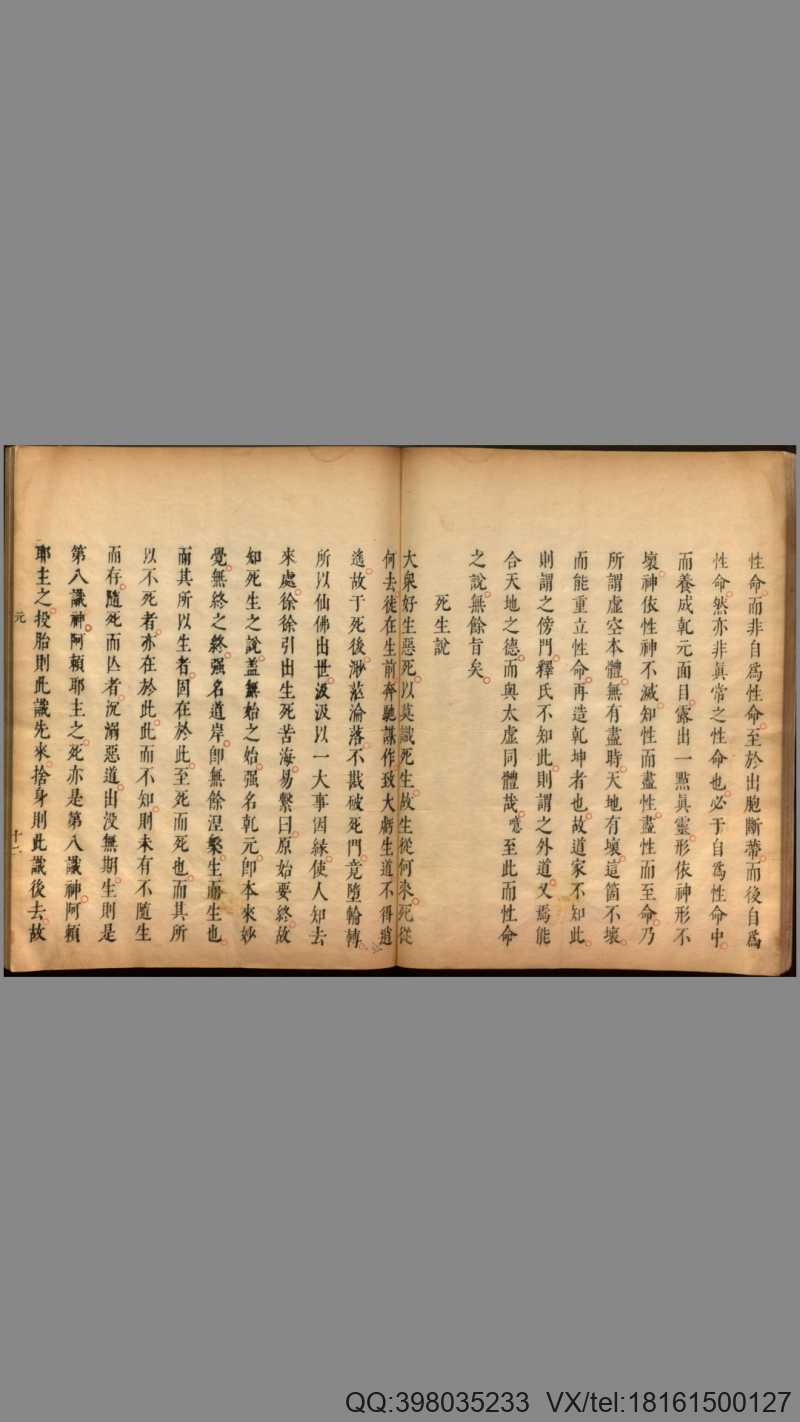 性命而非自爲性命至於出胞斷蒂而後自爲
性命然亦非眞常之性命也必于自爲性命中
而養成乾元面目露出一點眞靈形依神形不
壞神依性神不滅知性而盡性盡性而至命乃
所謂虛空本體無有盡時天地有壞這箇不壞
而能重立性命再造乾坤者也故道家不知此
則謂之傍門釋氏不知此則謂之外道又焉能
合天地之德而與太虛同體哉噫至此而性命
之說無餘旨矣
死生說
大衆好生惡死以莫識死生故生從何來死從
何去徒在生前奔馳謀作致大虧生道不得逍
遙故于死後渺茫淪落不戡破死門竟墮輪轉
所以仙佛出世汲汲以一大事因緣使人知去
來處徐徐引出生死苦海易繫曰原始要終故
知死生之說盖無始之始强名乾元卽本來妙
覺無終之終强名道岸卽無餘涅槃生而生也
而其所以生者因在於此至死而死也而其所
以不死者亦在於此此而不知則未有不隨生
而存隨死而亾者沉溺惡道出没無期生則是
第八識神阿賴耶主之死亦是第八識神阿賴
耶主之投胎則此識先來捨身則此識後去故
元
十二
QQ:398035233 VX/tel:18161500127